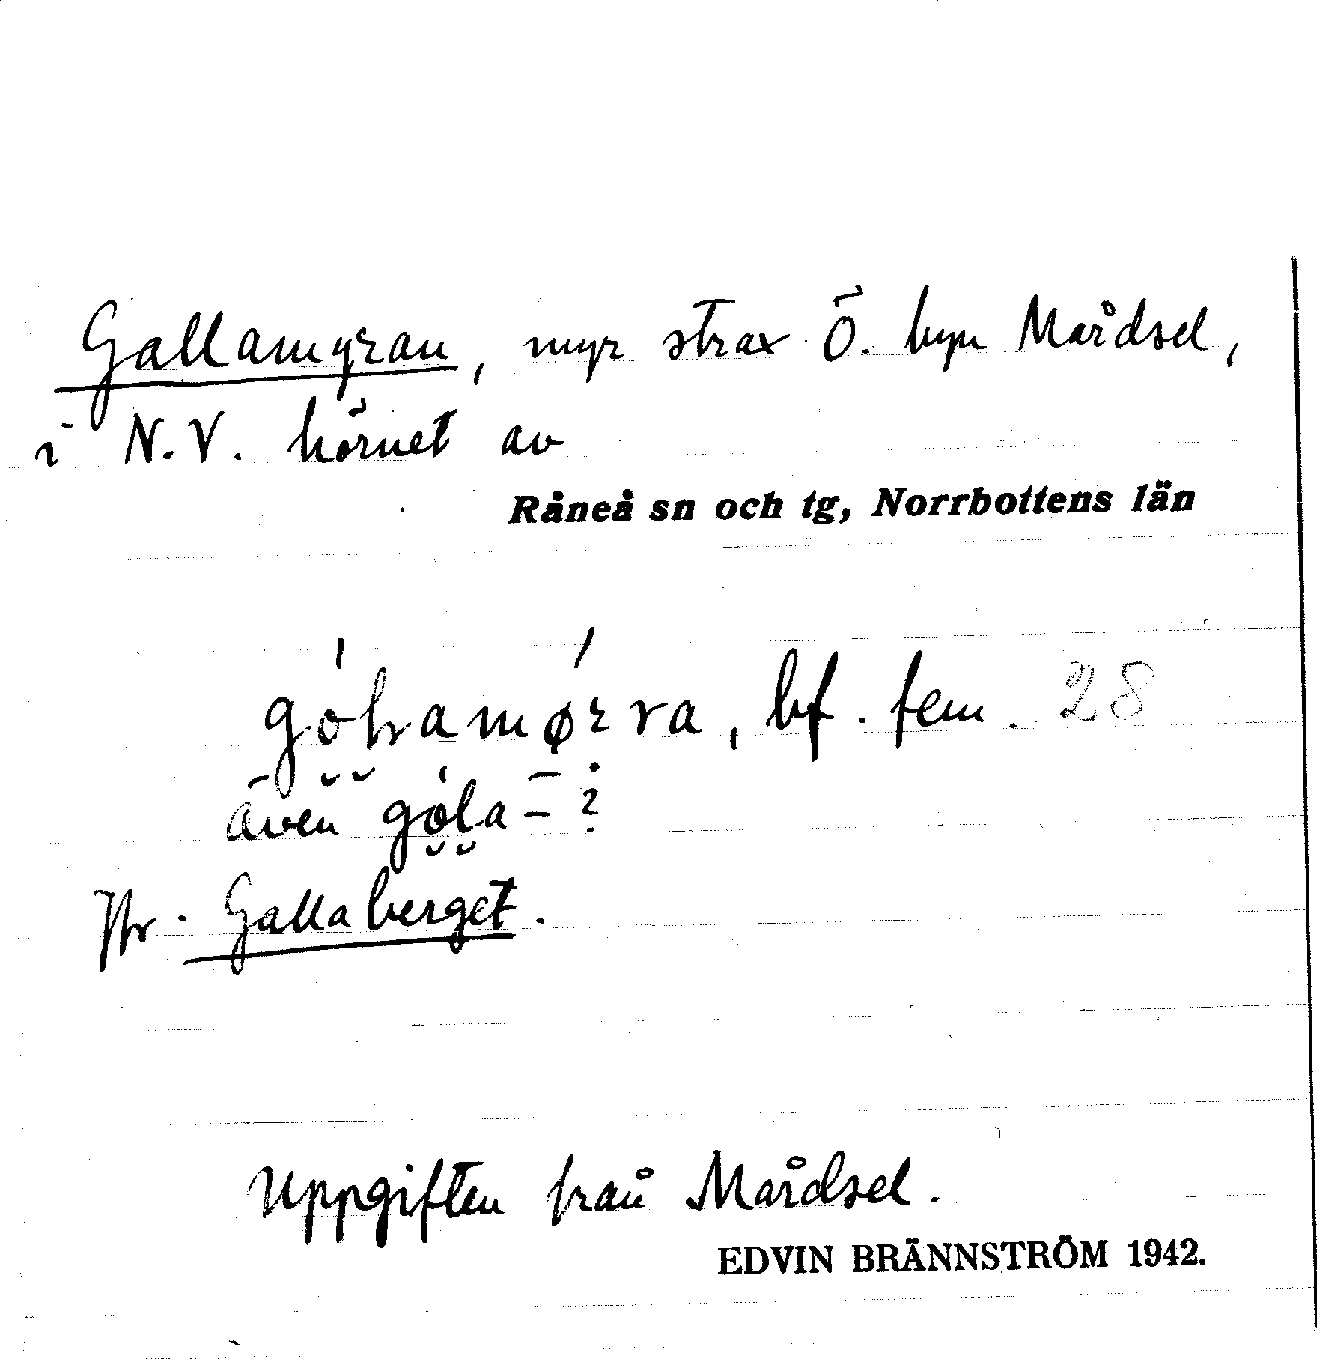 Gallamyran, myr strax Ö. byn Mårdsel,
i N.V. hörnet av
Råneå sn och tg, Norrbottens län
bf. fem. 28
även góla- ?
Jfr. Gallaberget.
Uppgiften från Mårdsel.
EDVIN BRÄNNSTRÖM 1942.